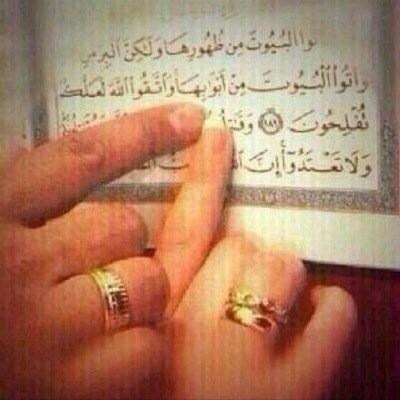 وا البيوت من ظهورها ولكن البر من
واتوا البيوت من أبوابها واتقوا الله لعلك
تفلحون ١٨٩
ولا تعتدوا إن